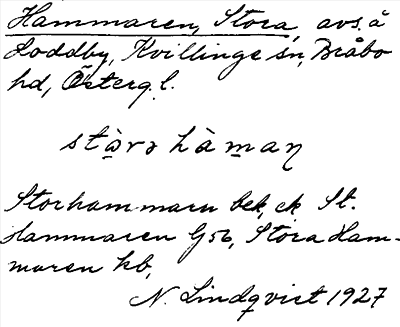 Hammaren, Stora, avs. å
Loddby, Kvillinge sn, Bråbo
hd, Österg. l.
stòrə hàmaṇ
Storhammarn bek, ek St.
Hammaren G56, Stora Ham-
maren kb,
N. Lindqvist 1927